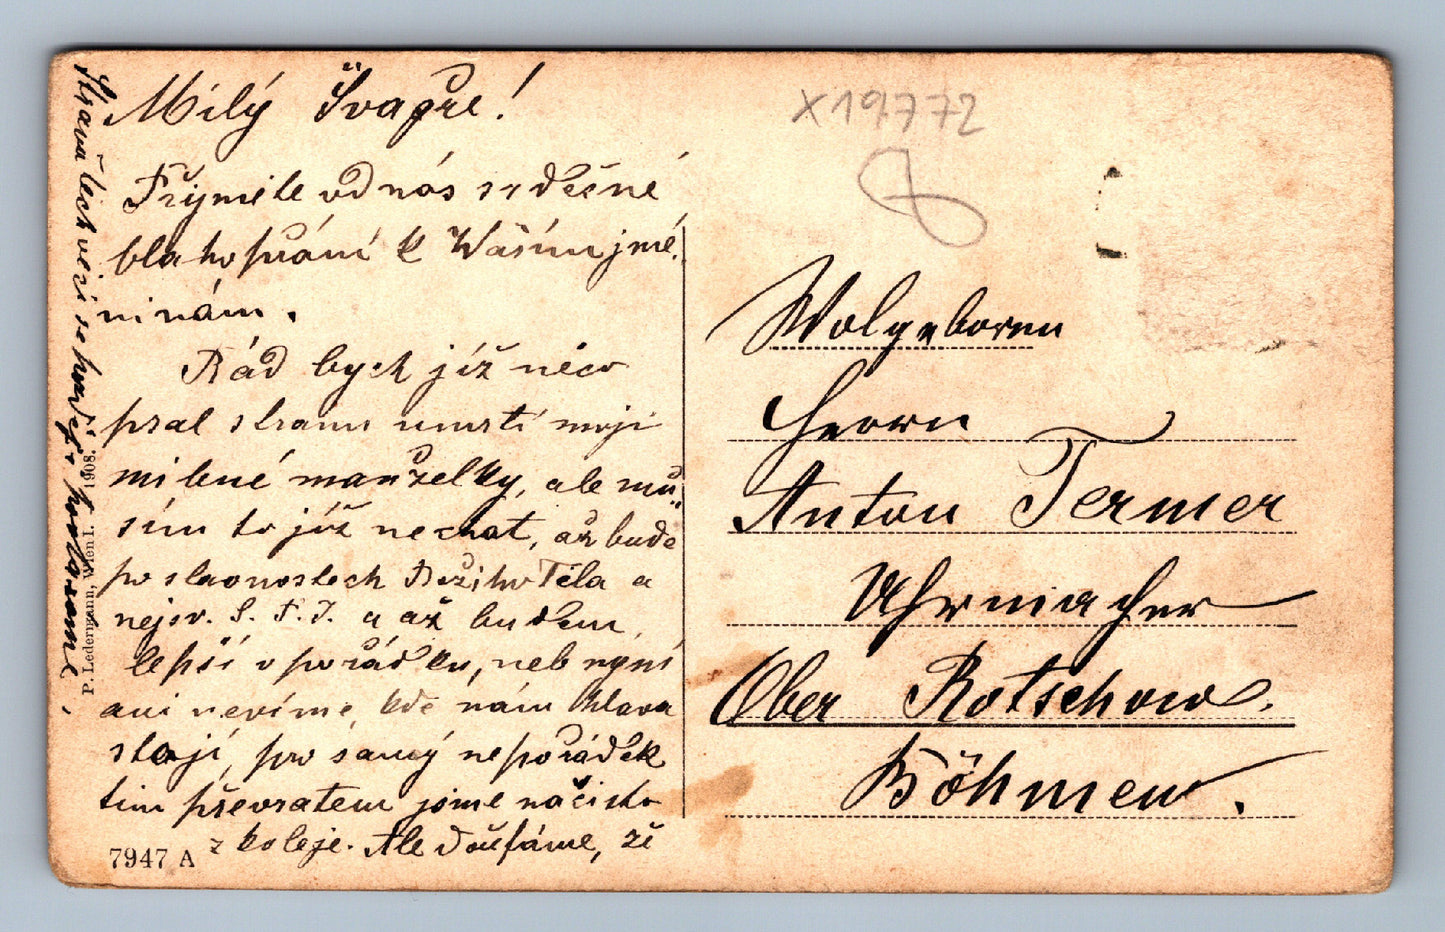 Milý Švagře!
Přijměte od nás srdečné
blahopřání k Vašim jmé-
ninám.
Rád bych již něco
psal stranu úmrtí moji
milené manželky, ale mu-
sím to již nechat, až bude
po slavnostech Božího Těla a
nejsv. S. P. J. a až budem
lepší v pořádku, neb nyní
ani nevíme, kde nám hlava
stojí, pro samý nepořádek
tím převratem jsme načisto
z koleje. Ale doufáme, že
7947 A
P. Ledermann, Wien I. 1908.
X19772
Wolgeboren
Herrn
Anton Termer
Uhrmacher
Ober Rotschow.
Böhmen.